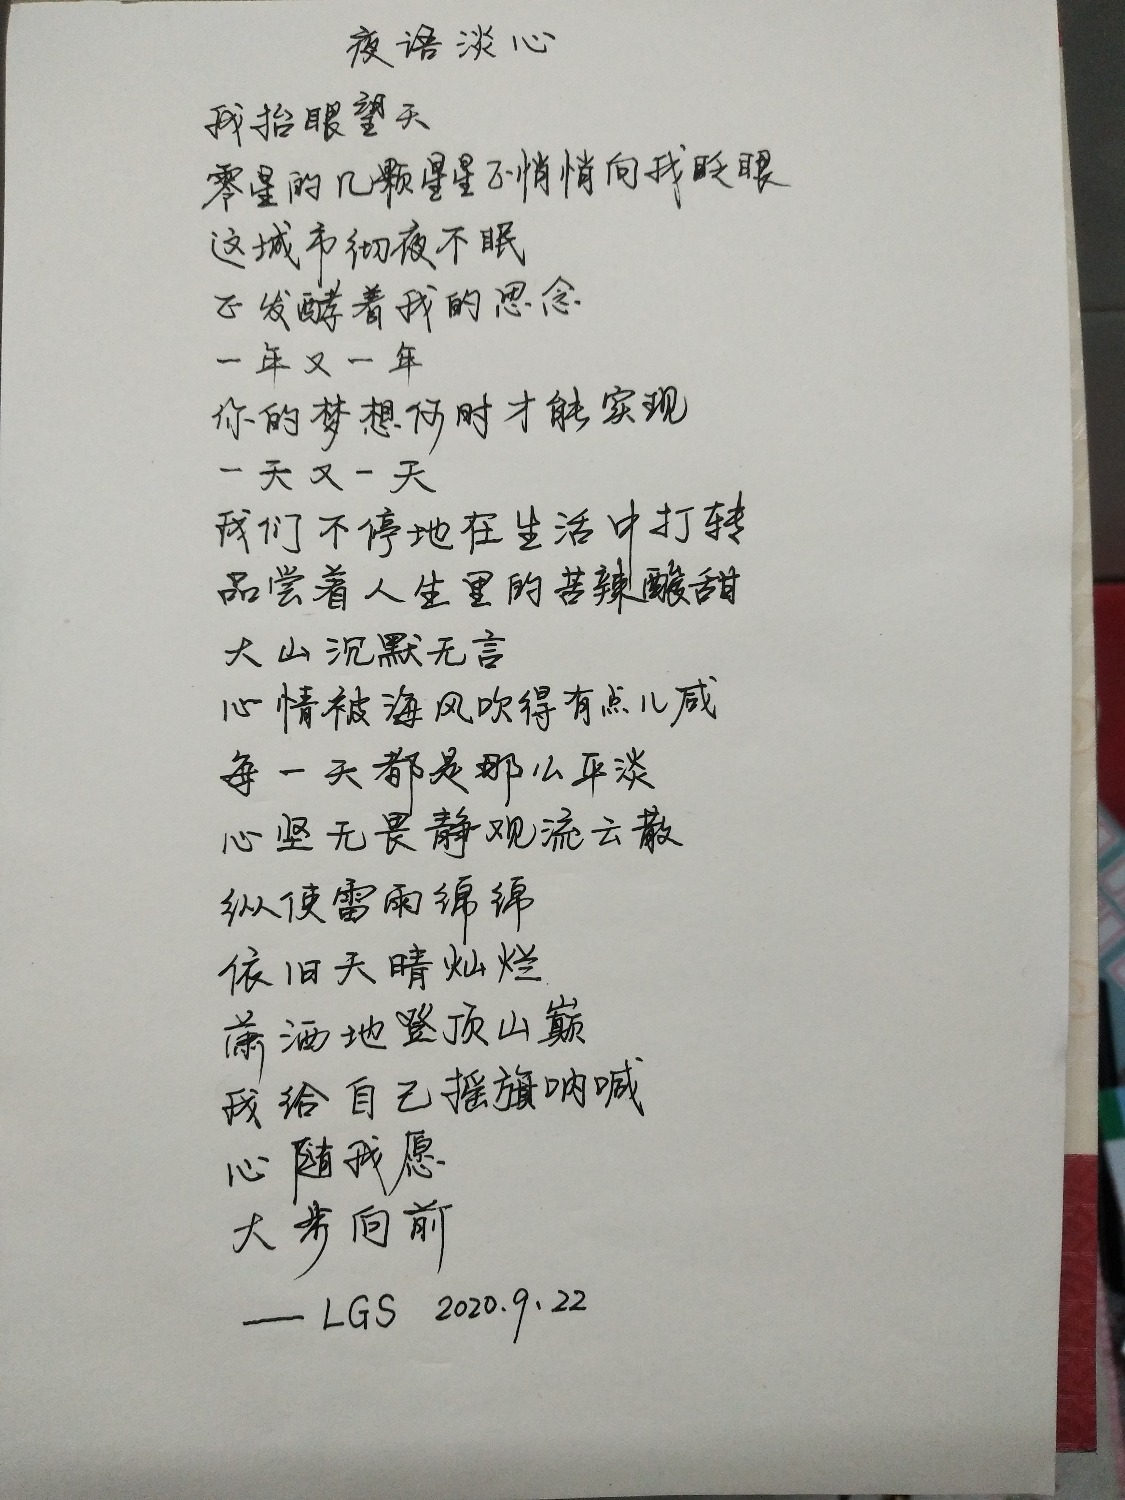 夜语淡心
我抬眼望天
零星的几颗星星正悄悄向我眨眼
这城市彻夜不眠
正发酵着我的思念
一年又一年
你的梦想何时才能实现
一天又一天
我们不停地在生活中打转
品尝着人生里的苦辣酸甜
大山沉默无言
心情被海风吹得有点儿咸
每一天都是那么平淡
心坚无畏静观流云散
纵使雷雨绵绵
依旧天晴灿烂
萧洒地登顶山巅
我给自己摇旗呐喊
心随我愿
大步向前
——LGS 2020.9.22